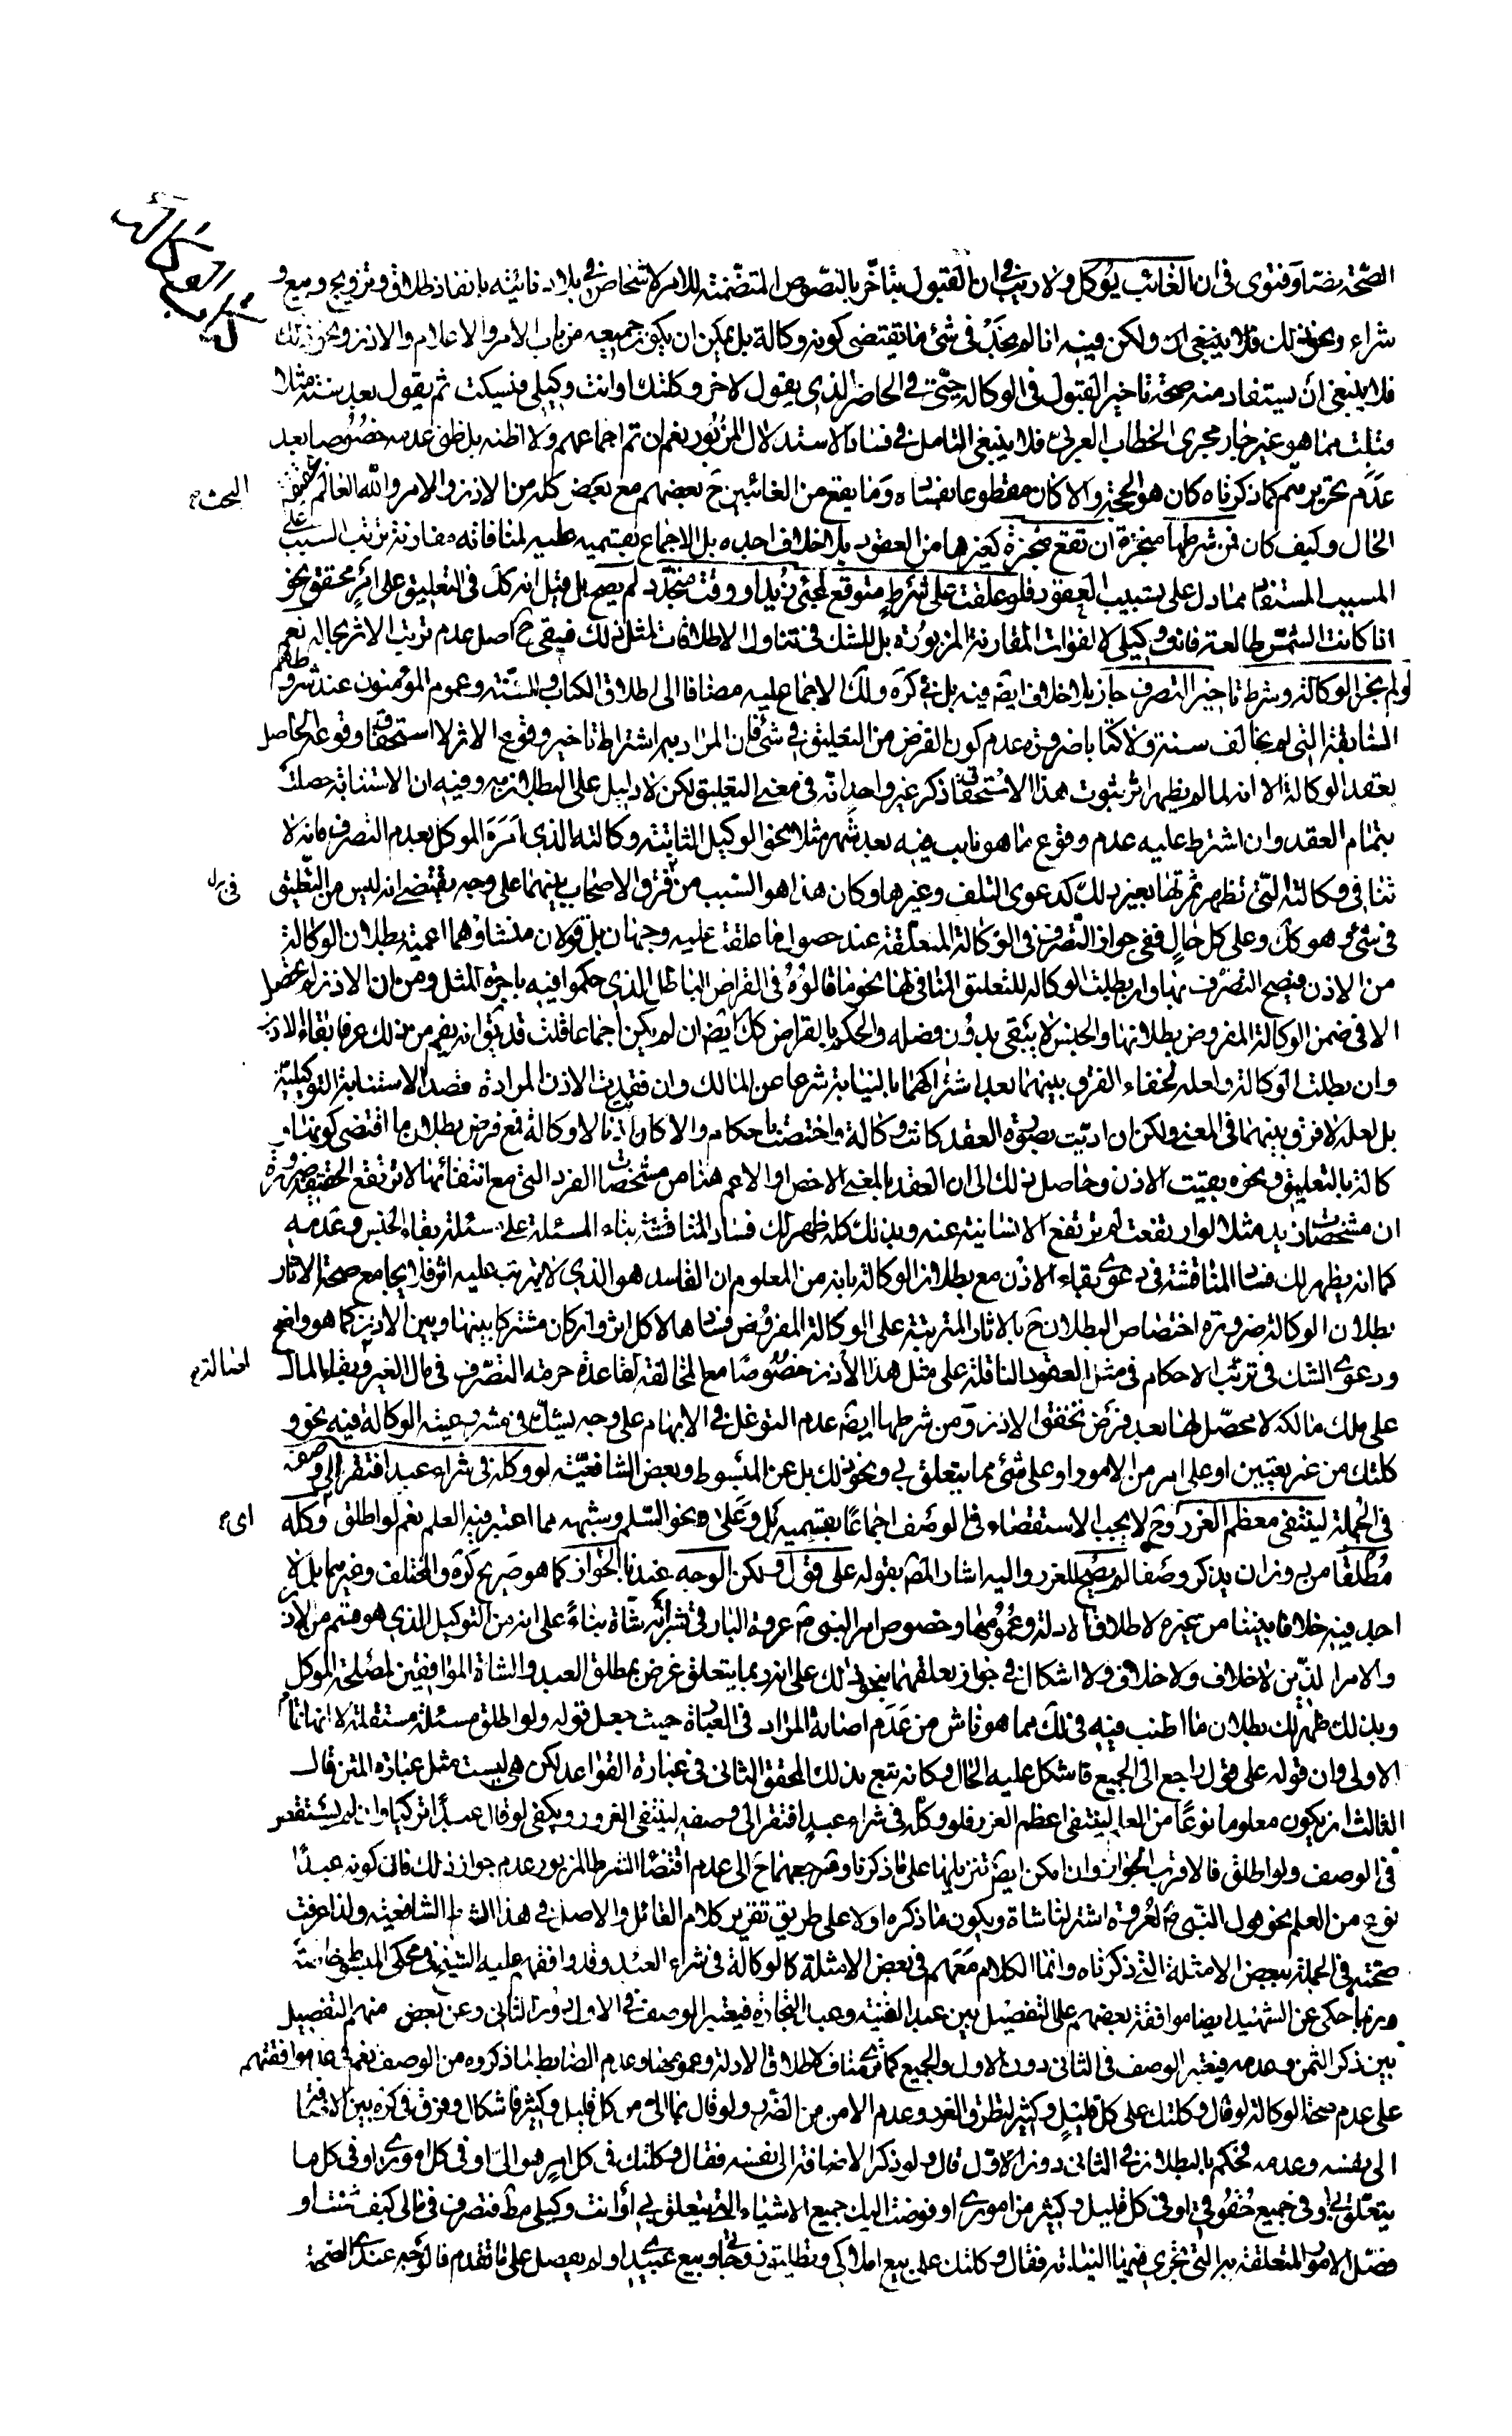 كتاب الوكالة
الصحة نصا وفتوى في ان الغائب يوكل ولا ريب في ان القبول يتأخر بالنصوص المتضمنة للامر لاشخاص في بلاد نائية بانفاذ طلاق وتزويج وبيع و
شراء ونحو ذلك فلا ينبغي ولكن فيه انا لم نجد في شئ ما يقتضي كونه وكالة بل يمكن ان يكون جميعه من باب الامر والاعلام والاذن ونحو ذلك
فلا ينبغي ان يستفاد منه صحة تاخير القبول في الوكالة حتى في الحاضر الذي يقول لاخر وكلتك او انت وكيلي فسكت ثم يقول بعد سنة مثلا
قبلت مما هو غير جار مجرى الخطاب العرفي فلا ينبغي التامل في فساد الاستدلال المزبور نعم ان تم اجماعهم ولا اظنه بل ظني عدمه خصوصا بعد
عدم تحرير منهم كما ذكرناه كان هو الحجة والا كان مقطوعا بفساده وما يقع من الغائبين ح بعضهم مع بعض كله من الاذن والامر والله العالم بحقيقة
البحث
الحال وكيف كان فمن شرطها منجزة ان تقع منجزة كغيرها من العقود بلا خلاف اجده بل الاجماع بقسميه عليه لمنافاته مقارنة ترتب السبب على
المسبب المستفاد مما دل على تسبيب العقود فلو علقت على شرط متوقع كمجئ زيد او وقت متجدد لم يصح بل قيل انه كك في التعليق على امر محقق نحو
ان كانت الشمس طالعة فانت وكيلي لا لفوات المقارنة المزبورة بل للشك في تناول الاطلاقات لمثل ذلك فيبقى ح اصل عدم ترتب الاثر بحاله نعم
لو نجز الوكالة وشرط تاخير التصرف جاز بلا خلاف ايض فيه بل في كره ولك الاجماع عليه مضافا الى اطلاق الكتاب والسنة وعموم المؤمنون عند شروطهم
السابقة التي لم يخالف سنة ولا كتابا ضرورة عدم كون الفرض من التعليق في شئ فان المراد به اشتراط تاخير وقوع الاثر لا استحقاق وقوعه الحاصل
بعقد الوكالة الا انه لما لم يظهر اثر ثبوت هذا الاستحقاق ذكر غير واحد انه في معنى التعليق لكن لا دليل على البطلان به وفيه ان الاستنابة حصلت
بتمام العقد وان اشترط عليه عدم وقوع ما هو نايب فيه بعد شهر مثلا نحو الوكيل الثابتة وكالته الذي امره الموكل بعدم التصرف فانه لا
تنافي وكالته التي تظهر ثمرتها بغير ذلك كدعوى التلف وغيرها وكان هذا هو السبب من فرق الاصحاب بينهما على وجه يقتضى انه ليس من التعليق
في شئ هو كك وعلى كل حال ففي جواز التصرف في الوكالة المتعلقة عند حصول ما علقت عليه وجهان بل قولان منشاؤهما اعمية بطلان الوكالة
من الاذن فيصح التصرف بها وان بطلت الوكالة للتعليق المنافي لها نحو ما قالوه في القراض الباطل الذي حكموا فيه باجرة المثل ومن ان الاذن لم تحصل
الا في ضمن الوكالة المفروض بطلانها والجنس لا يبقى بدون فصله والحكم بالقراض كك ايض ان لم يكن اجماعا قلت قد يق انه يفهم من ذلك عرفا بقاء الاذن
وان بطلت الوكالة ولعله لخفاء الفرق بينهما بعد اشتراكهما بالنيابة شرعا عن المالك وان فقدت الاذن المرادة قصد الاستنابة التوكيلية
بل لعله لا فرق بينهما في المعنى ولكن ان اديت بصورة العقد كانت وكالة واختصت باحكام والا كان اذنا لا وكالة فمع فرض بطلان ما اقتضى كونها و
كالة بالتعليق ونحوه بقيت الاذن وحاصل ذلك الى ان العقد بالمعنى الاخص او الاعم هنا من مشخصات الفرد التي مع انتفائها لا ترتفع الحقيقة ضرورة
ان مشخصات زيد مثلا لو ارتفعت لم ترتفع الانسانية عنه وبذلك كله ظهر لك فساد المناقشة بناء المسئلة على مسئلة بقاء الجنس وعدمه
كما انه يظهر لك فساد المناقشة في دعوى بقاء الاذن مع بطلان الوكالة بانه من المعلوم ان الفاسد هو الذي لا يترتب عليه اثر فلا يجامع صحة الاثار
بطلان الوكالة ضرورة اختصاص البطلان ح بالاثار المترتبة على الوكالة المفروض فسادها لا كل اثر وان كان مشتركا بينها وبين الاذن كما هو واضح
ودعوى الشك في ترتب الاحكام في مثل العقود الناقلة على مثل هذا الاذن خصوصا مع المخالفة لقاعدة حرمة التصرف في مال الغير وبقاء المال
اصالة
على ملك مالكه لا محصل لها بعد فرض تحقق الاذن ومن شرطها ايض عدم التوغل في الابهام على وجه يشك في مشروعية الوكالة فيه نحو و
كلتك من غير تعيين او على امر من الامور او على شئ مما يتعلق بي ونحو ذلك بل عن المبسوط وبعض الشافعية لو وكله في شراء عبد افتقر الى وصفه
في الجملة لينتفي معظم الغرر وح لا يجب الاستقصاء في الوصف اجماعا بقسميه بل وعلى نحو السلم وشبهه مما اعتبر فيه العلم نعم لو اطلق وكله
اي
مطلقا من دون ان يذكر وصفا لم يصح للغرر واليه اشار المص بقوله على قول ولكن الوجه عندنا الجواز كما هو صريح كره والمختلف وغيرهما بل لم
اجد فيه خلافا بيننا من غيره لاطلاق الادلة وعمومها وخصوص امر النبي ص عروة البارقي بشراء شاة بناء على انه من التوكيل الذي هو قسم من الاذن
والامر الذين لا خلاف ولا اشكال في جواز تعلقهما بنحو ذلك على انه ربما يتعلق غرض بمطلق العبد والشاة الموافقين لمصلحة الموكل
وبذلك ظهر لك بطلان ما اطنب فيه في لك مما هو ناش من عدم اصابة المراد في العبارة حيث جعل قوله ولو اطلق مسئلة مستقلة لا انها تمام
الاولى وان قوله على قول راجع الى الجميع فاشكل عليه الحال وكانه تبع بذلك المحقق الثاني في عبارة القواعد لكن هي ليست مثل عبارة المتن قال
الثالث ان يكون معلوما نوعا من العلم لينتفي اعظم الغرر فلو وكله في شراء عبد افتقر الى وصفه لينتفي الغرر ويكفي لو قال عبدا تركيا وان لم يستقص
في الوصف ولو اطلق فالاقرب الجواز وان امكن ايض تنزيلها على ما ذكرنا ومرجعهما ح الى عدم اقتضاء الشرط المزبور عدم جواز ذلك فان كونه عبدا
نوع من العلم نحو قول النبي ص لعروة اشتر لنا شاة ويكون ما ذكره اولا على طريق تقرير كلام القائل والاصل في هذا الشرط الشافعية ولذا عرفت
صحته في الجملة ببعض الامثلة التي ذكرناه وانما الكلام معهم في بعض الامثلة كالوكالة في شراء العبد وقد وافقهم عليه الشيخ في محكي المبسوط خاصة
وربما حكى عن الشهيد ايضا موافقة بعضهم على التفصيل بين عبد القنية وعبد التجارة فيعتبر الوصف في الاول دون الثاني وعن بعض منهم التفصيل
بين ذكر الثمن وعدمه فيعتبر الوصف في الثاني دون الاول والجميع كما ترى مناف لاطلاق الادلة وعمومها وعدم الضابط لما ذكروه من الوصف نعم في عد موافقتهم
على عدم صحة الوكالة لو قال وكلتك على كل قليل وكثير لتطرق الغرر وعدم الامن من الضرر ولو قال بمالي من كل قليل وكثير فاشكال وفرق في كره بين الاضافة
الى نفسه وعدمه فحكم بالبطلان في الثاني دون الاول قال ولو ذكر الاضافة الى نفسه فقال وكلتك في كل امر هو الي او في كل اموري او في كل ما
يتعلق بي او في جميع حقوقي او في كل قليل وكثير من اموري او فوضت اليك جميع الاشياء التي يتعلق بي او انت وكيلي مط فتصرف في مالي كيف شئت او
فصل الامور المتعلقة به التي تجري فيها النيابة فقال وكلتك على بيع املاكي وتطليق زوجاتي وبيع عبيدي او لم يفصل على ما تقدم فالوجه عندي الصحة